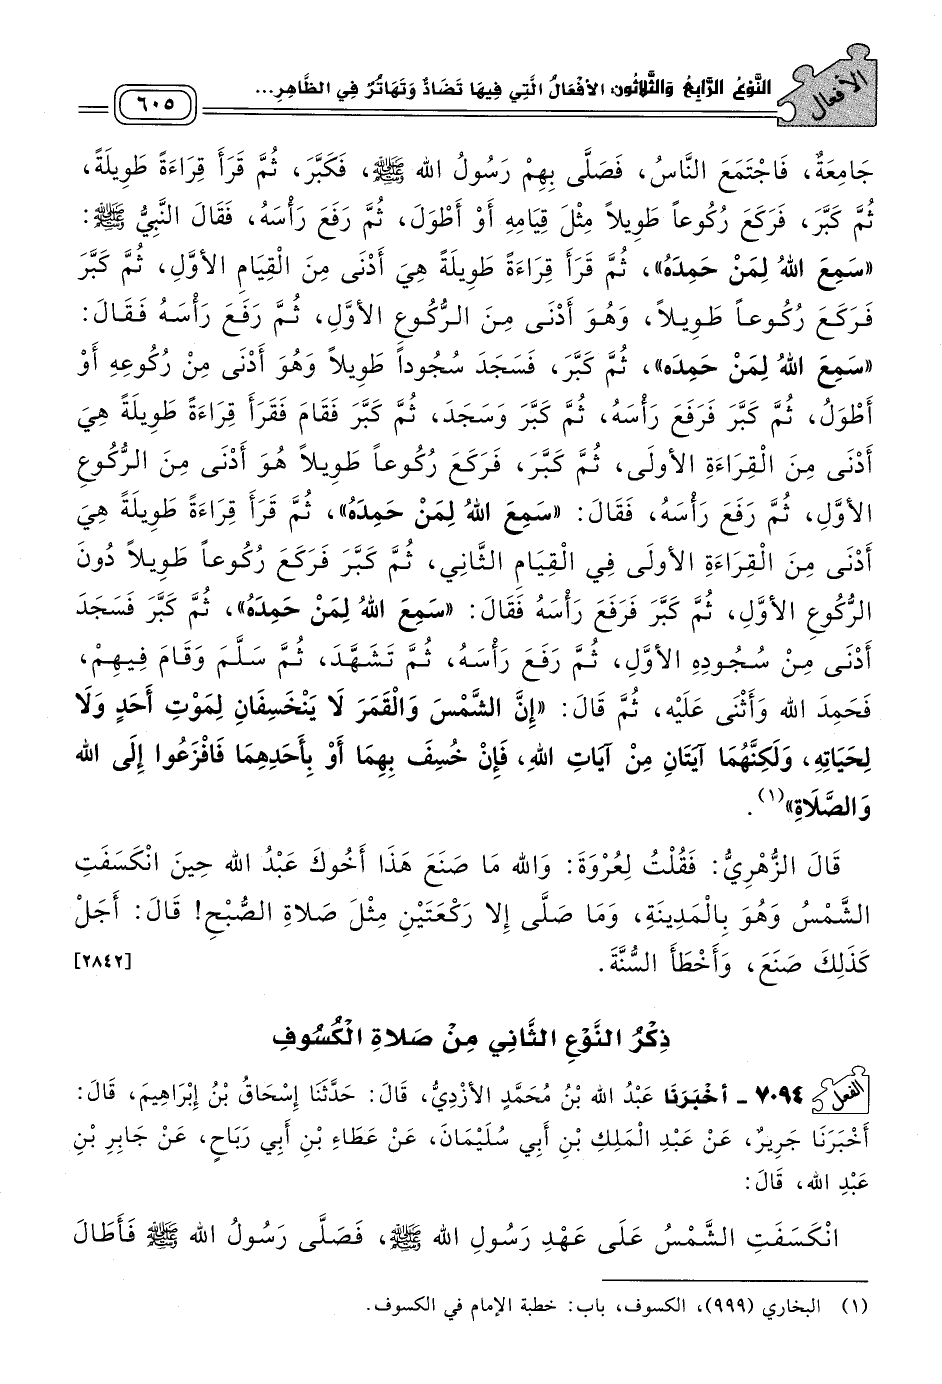 الأفعال
النَّوْعُ الرَّابِعُ وَالثَّلاثُون: الأَفْعَالُ الَّتِي فِيهَا تَضَادٌ وَتَهَاتُرٌ فِي الظَّاهِرِ...
٦٠٥
جَامِعَةٌ، فَاجْتَمَعَ النَّاسُ، فَصَلَّى بِهِمْ رَسُولُ الله ﷺ، فَكَبَّرَ، ثُمَّ قَرَأَ قِرَاءَةً طَوِيلَةً،
ثُمَّ كَبَّرَ، فَرَكَعَ رُكُوعاً طَوِيلاً مِثْلَ قِيَامِهِ أَوْ أَطْوَلَ، ثُمَّ رَفَعَ رَأْسَهُ، فَقَالَ النَّبِيُّ ﷺ:
«سَمِعَ اللهُ لِمَنْ حَمِدَهُ»، ثُمَّ قَرَأَ قِرَاءَةً طَوِيلَةً هِيَ أَدْنَى مِنَ الْقِيَامِ الأَوَّلِ، ثُمَّ كَبَّرَ
فَرَكَعَ رُكُوعاً طَوِيلاً، وَهُوَ أَدْنَى مِنَ الرُّكُوعِ الأَوَّلِ، ثُمَّ رَفَعَ رَأْسَهُ فَقَالَ:
«سَمِعَ اللهُ لِمَنْ حَمِدَه»، ثُمَّ كَبَّرَ، فَسَجَدَ سُجُوداً طَوِيلاً وَهُوَ أَدْنَى مِنْ رُكُوعِهِ أَوْ
أَطْوَلُ، ثُمَّ كَبَّرَ فَرَفَعَ رَأْسَهُ، ثُمَّ كَبَّرَ وَسَجَدَ، ثُمَّ كَبَّرَ فَقَامَ فَقَرَأَ قِرَاءَةً طَوِيلَةً هِيَ
أَدْنَى مِنَ الْقِرَاءَةِ الأُولَى، ثُمَّ كَبَّرَ، فَرَكَعَ رُكُوعاً طَوِيلاً هُوَ أَدْنَى مِنَ الرُّكُوعِ
الأَوَّلِ، ثُمَّ رَفَعَ رَأْسَهُ، فَقَالَ: «سَمِعَ اللهُ لِمَنْ حَمِدَهُ»، ثُمَّ قَرَأَ قِرَاءَةً طَوِيلَةً هِيَ
أَدْنَى مِنَ الْقِرَاءَةِ الأُولَى فِي الْقِيَامِ الثَّانِي، ثُمَّ كَبَّرَ فَرَكَعَ رُكُوعاً طَوِيلاً دُونَ
الرُّكُوعِ الأَوَّلِ، ثُمَّ كَبَّرَ فَرَفَعَ رَأْسَهُ فَقَالَ: «سَمِعَ اللهُ لِمَنْ حَمِدَهُ»، ثُمَّ كَبَّرَ فَسَجَدَ
أَدْنَى مِنْ سُجُودِهِ الأَوَّلِ، ثُمَّ رَفَعَ رَأْسَهُ، ثُمَّ تَشَهَّدَ، ثُمَّ سَلَّمَ وَقَامَ فِيهِمْ،
فَحَمِدَ الله وَأَثْنَى عَلَيْهِ، ثُمَّ قَالَ: «إِنَّ الشَّمْسَ وَالْقَمَرَ لَا يَنْخَسِفَانِ لِمَوْتِ أَحَدٍ وَلَا
لِحَيَاتِهِ، وَلَكِنَّهُمَا آيَتَانِ مِنْ آيَاتِ اللهِ، فَإِنْ خُسِفَ بِهِمَا أَوْ بِأَحَدِهِمَا فَافْزَعُوا إِلَى الله
وَالصَّلَاةِ»(١).
قَالَ الزُّهْرِيُّ: فَقُلْتُ لِعُرْوَةَ: وَالله مَا صَنَعَ هَذَا أَخُوكَ عَبْدُ الله حِينَ انْكَسَفَتِ
الشَّمْسُ وَهُوَ بِالْمَدِينَةِ، وَمَا صَلَّى إِلا رَكْعَتَيْنِ مِثْلَ صَلاةِ الصُّبْحِ! قَالَ: أَجَلْ
كَذَلِكَ صَنَعَ، وَأَخْطَأَ السُّنَّةَ. [٢٨٤٢]
ذِكْرُ النَّوْعِ الثَّانِي مِنْ صَلاةِ الْكُسُوفِ
الفعل ٧٠٩٤ - أَخْبَرَنَا عَبْدُ الله بْنُ مُحَمَّدٍ الأَزْدِيُّ، قَالَ: حَدَّثَنَا إِسْحَاقُ بْنُ إِبْرَاهِيمَ، قَالَ:
أَخْبَرَنَا جَرِيرٌ، عَنْ عَبْدِ الْمَلِكِ بْنِ أَبِي سُلَيْمَانَ، عَنْ عَطَاءِ بْنِ أَبِي رَبَاحٍ، عَنْ جَابِرِ بْنِ
عَبْدِ الله، قَالَ:
انْكَسَفَتِ الشَّمْسُ عَلَى عَهْدِ رَسُولِ الله ﷺ، فَصَلَّى رَسُولُ الله ﷺ فَأَطَالَ
(١) البخاري (٩٩٩)، الكسوف، باب: خطبة الإمام في الكسوف.